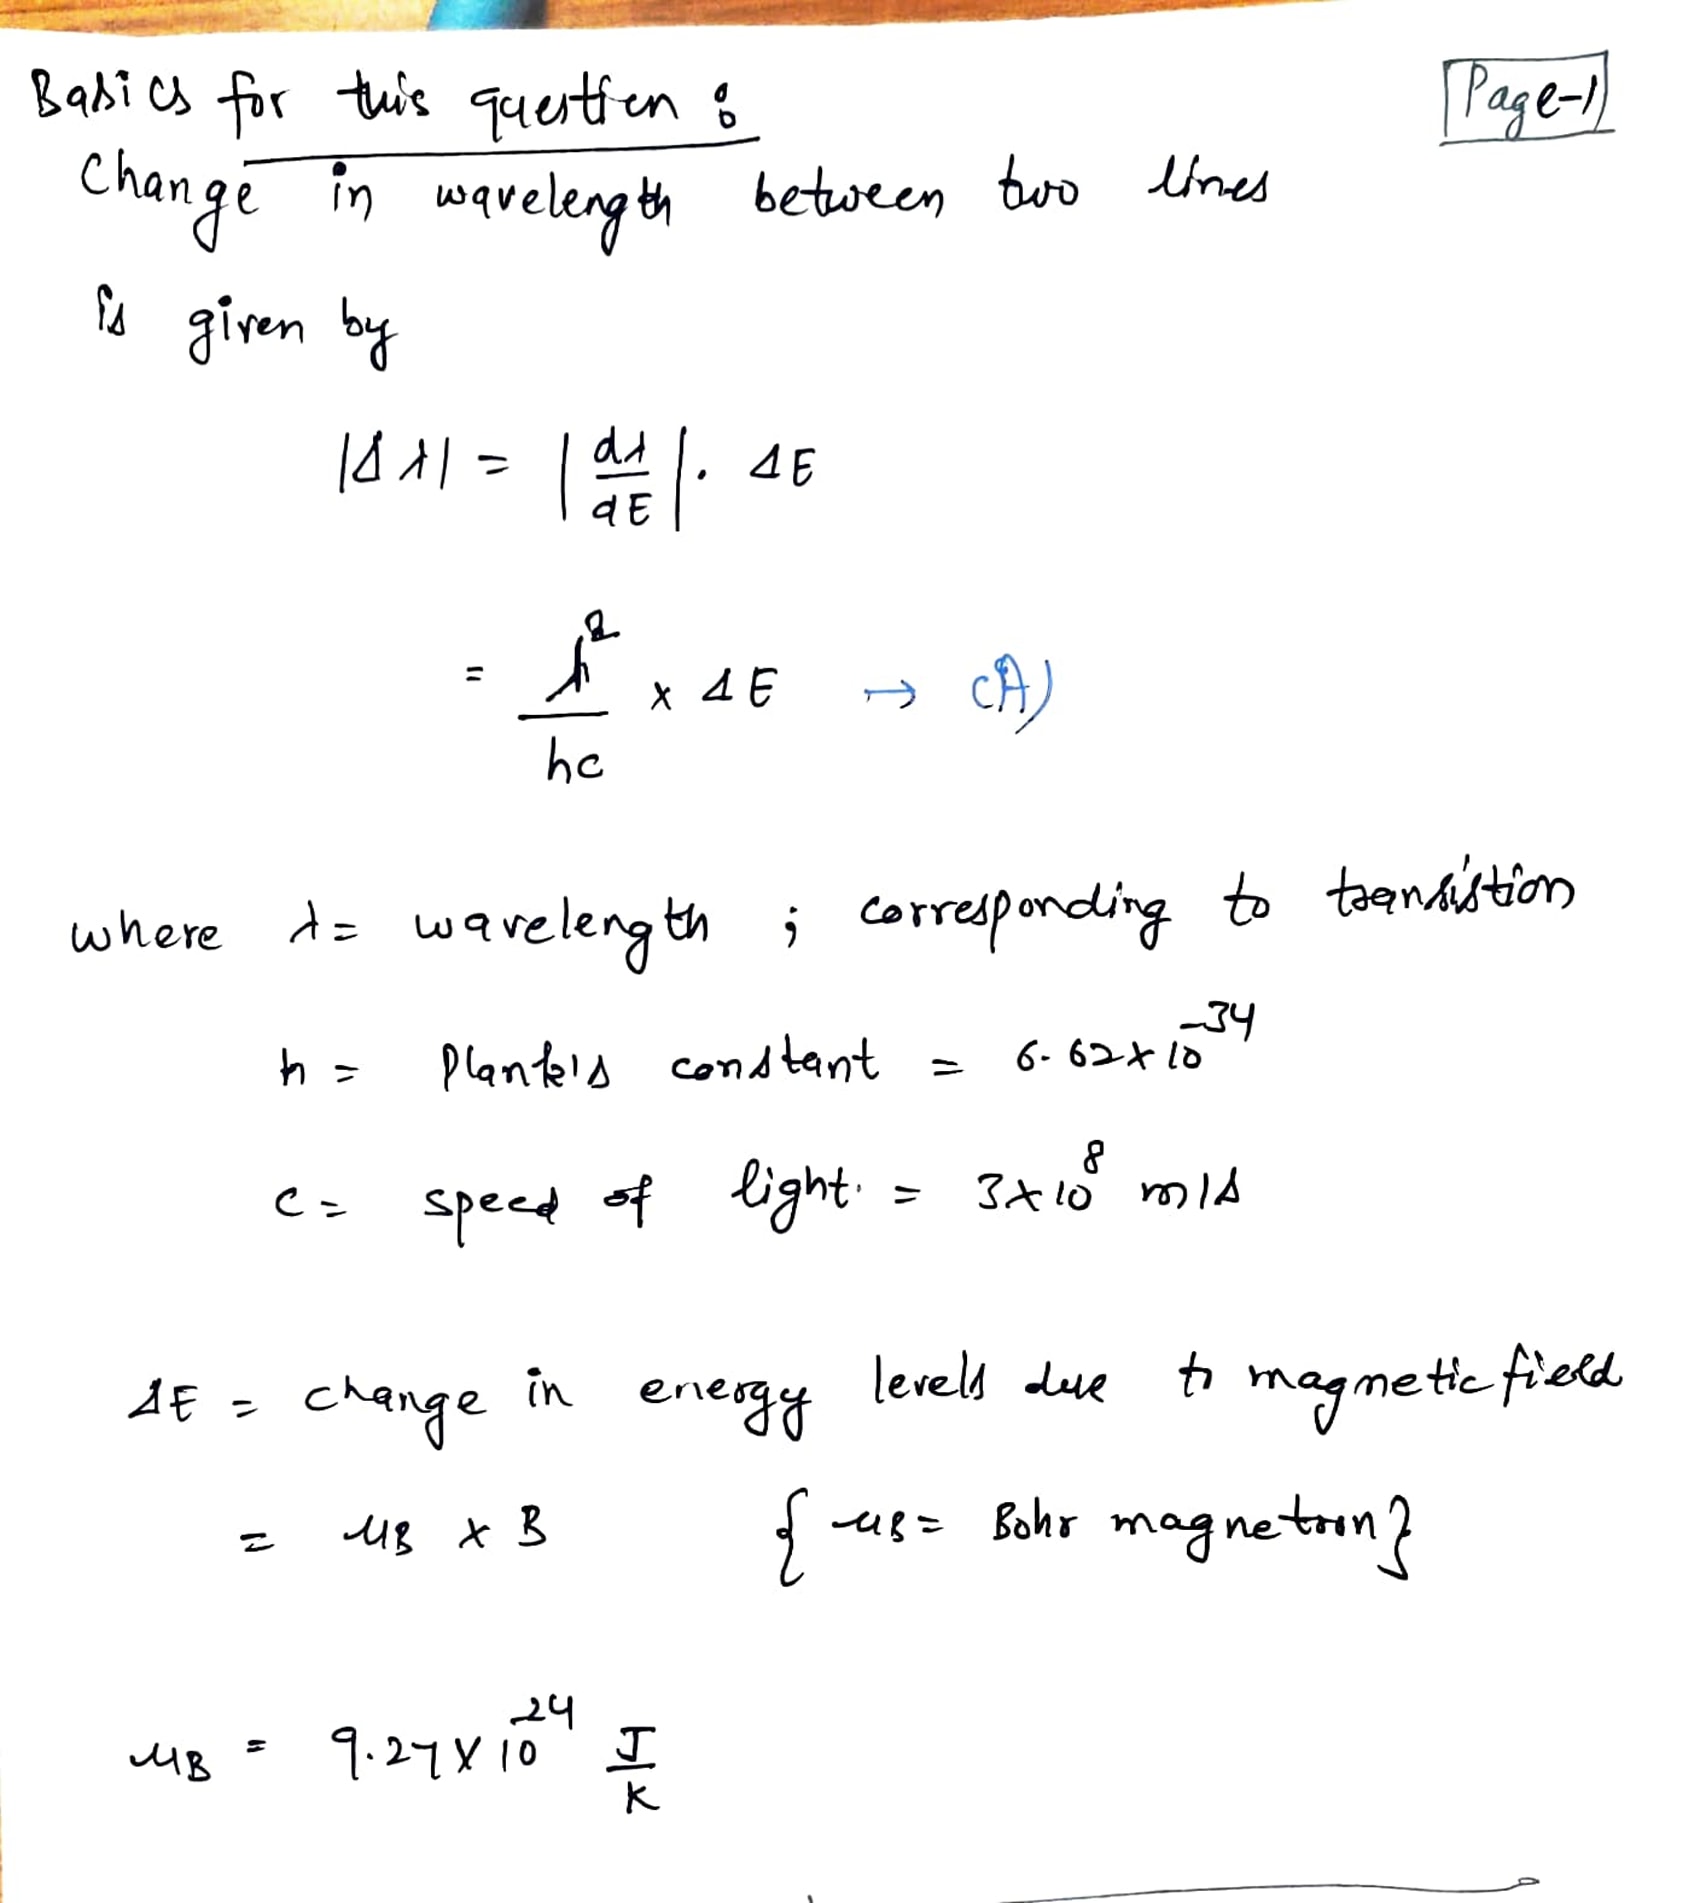 Basics for this question :
Page-1
Change in wavelength between two lines
is given by
|Δλ| = |dλ/dE| . ΔE
= λ²/hc × ΔE → (A)
where λ = wavelength ; corresponding to transistion
h = Plank's constant = 6.62×10⁻³⁴
c = speed of light. = 3×10⁸ m/s
ΔE = change in energy levels due to magnetic field
= μB × B {μB = Bohr magnetron}
μB = 9.27×10⁻²⁴ J/K